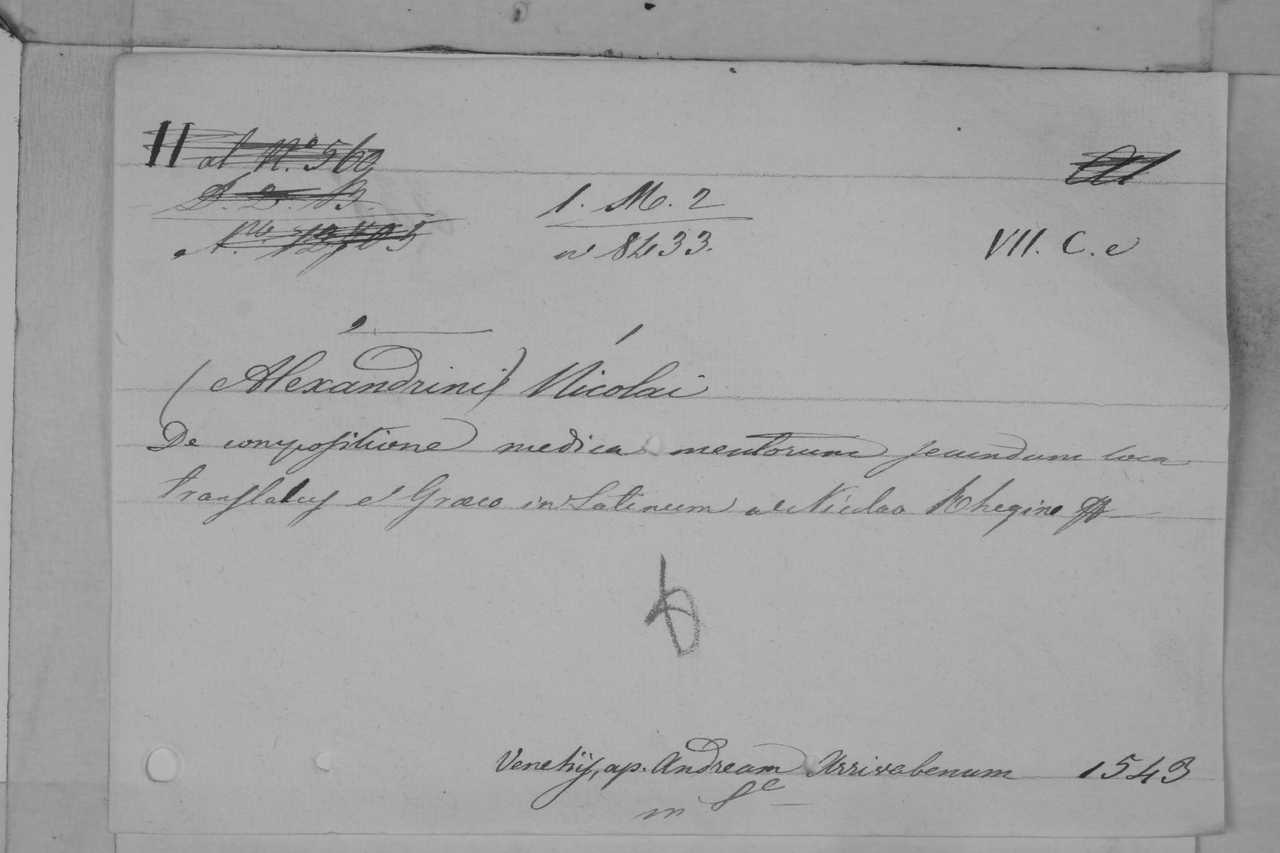 11 al N.° 560
A. 2. B.
N.ro 12705
1. M. 2
n 8433.
Al
VII. C. e
(Alexandrini) Nicolai
De compositione medicamentorum secundum loca
translatus e Græco in Latinum a Nicolao Rhegino
Venetijs, ap. Andream Arrivabenum 1543
in 8°